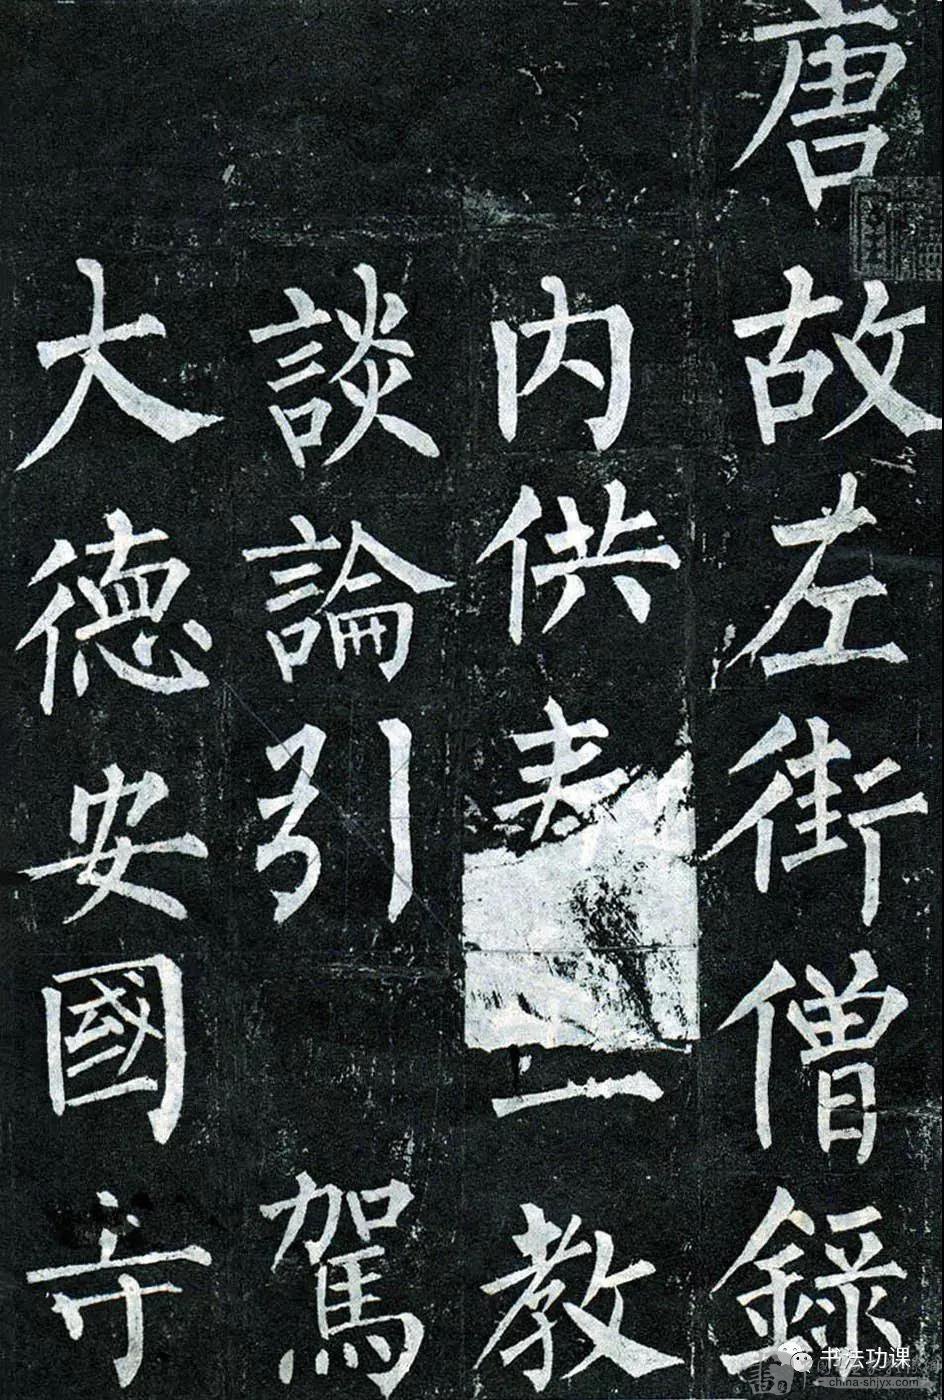 唐故左街僧錄
內供奉三教
談論引駕
大德安國寺
书法功课
china-shjyx.com